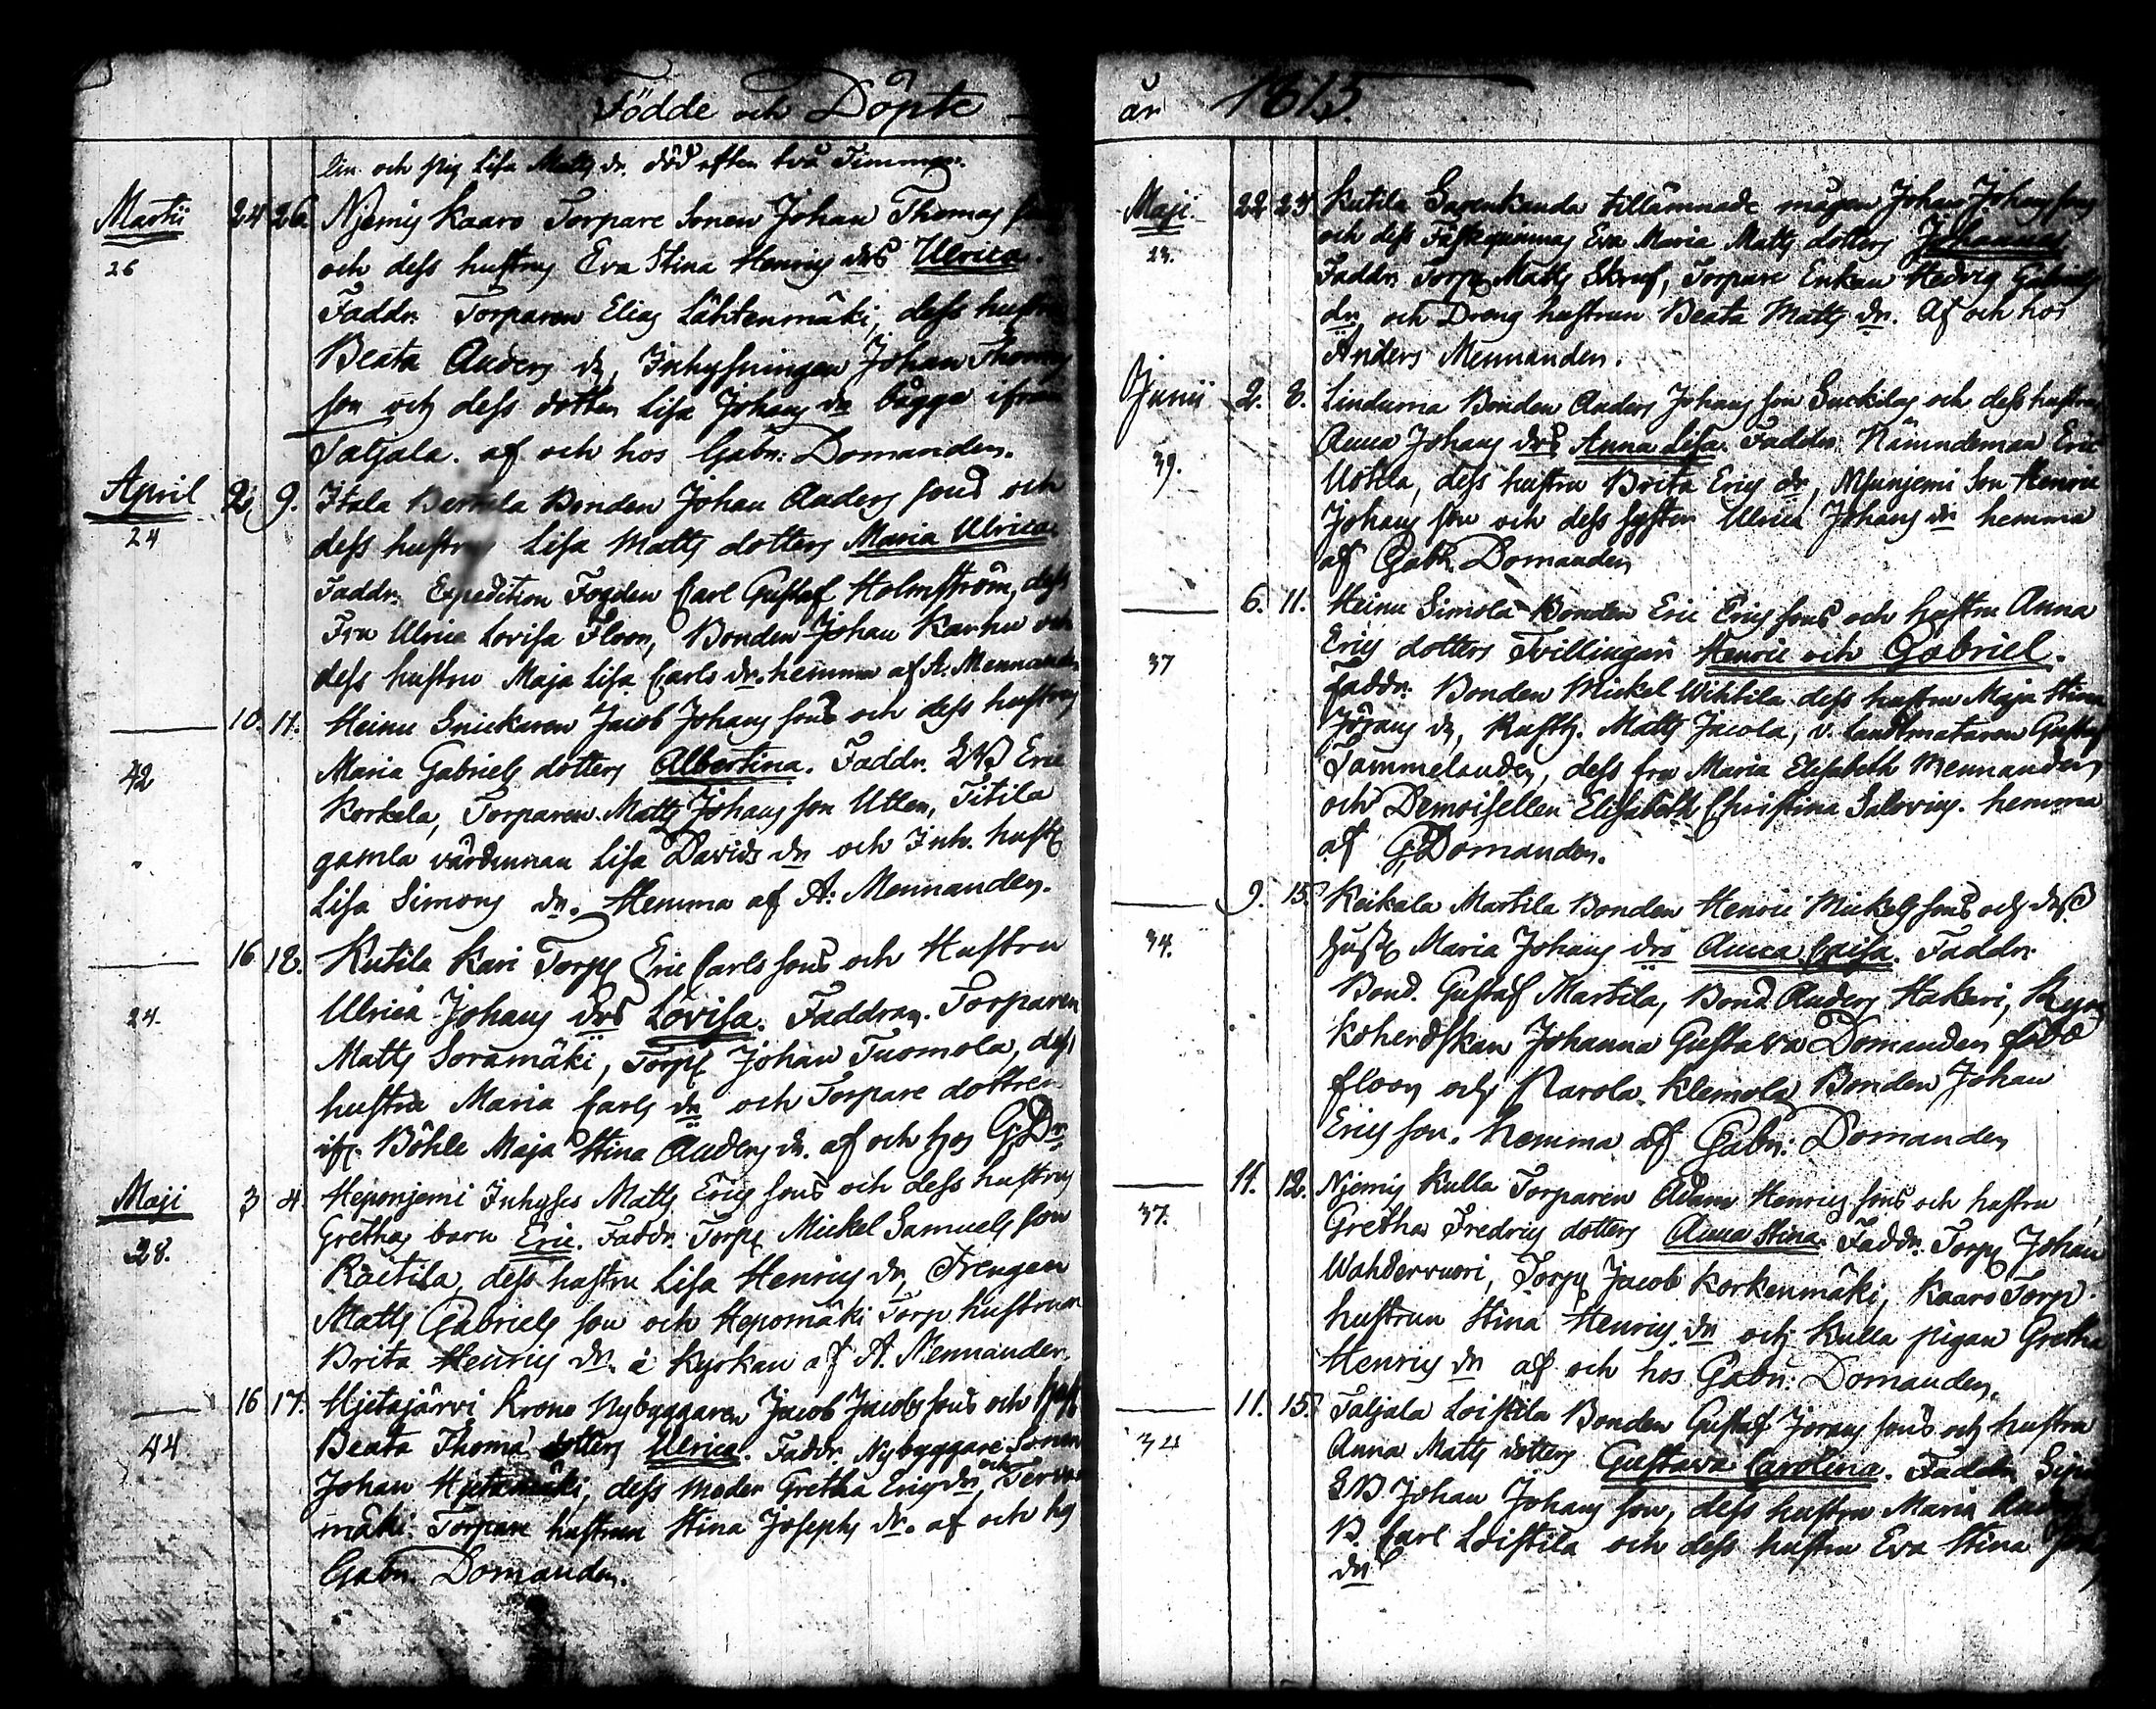 Födde och Döpte
lin och pig Lisa Matts dr. död efter två Timmar.
Martii 24 26. Njemis Kaaro Torpare Sonen Johan Thomas
26 och dess hustrus Eva Stina Henrics drs Ulrica.
Faddr. Torparen Elias Lähtenmäki, dess hustru
Beata Anders dr, Inhysningen Johan Thomas
son och dess dotter Lisa Johans dr bägge ifrån
Taljala. af och hos Gabr: Domander.
April 2. 9. Itala Bertula Bonden Johan Anders sons och
24 dess hustrus Lisa Matts dotters Maria Ulrica.
Faddr. Expedition Fogden Carl Gustaf Holmström, dess
Fru Ulrica Lovisa Floor, Bonden Johan Karhu och
dess hustru Maja Lisa Carls dr. hemma af A. Mennander
10. 11. Heinu Snickaren Jacob Johans sons och dess hustrus
42 Maria Gabriels dotters Albertina. Faddr. Eric
Korkela, Torparen Matts Johans son Utlen, Titila
gamla värdinnan Lisa Davids dr och Inh. hustr
Lisa Simons dr. Hemma af A: Mennander.
16 18. Kutila Kari Torp Eric Carls sons och Hustru
24. Ulrica Johans drs Lovisa. Faddrar. Torparen
Matts Soramäki, Torp Johan Tuomola, dess
hustru Maria Carls dr och Torpare dottren
ifr. Böhle Maja Stina Anders dr. af och hos G: Dr
Maji 3 4. Heponjemi Inhyses Matts Erics sons och dess hustrus
28. Grethas barn Eric. Faddr. Torp Mickel Samuels son
Raitila, dess hustru Lisa Henrics dr, Drengen
Matts Gabriels son och Hepomäki Torp. hustrun
Brita Henrics dr. i Kyrkan af A. Mennander.
16 17. Hjetajärvi Krono Nybyggaren Jacob Jacobs sons och
44 Beata Thomæ dotters Ulrica. Faddr. Nybyggare Sonen
Johan Hjetamäki, dess Moder Gretha Erics dr, och Terva
mäki Torpare hustrun Stina Josephs dr. af och hos
Gabr. Domander.
år 1815.
Maji. 22 23 Kutila tillämnade mågen Johan Johans sons
23. och dess Fästeqvinnas Eva Maria Matts dotters Johannes
Faddr. Torp Matts Skruf, Torpare Enkan Hedvig Gabriels
dr, och Dreng hustrun Beata Matts dr. af och hos
Anders Mennander.
Junii 2. 8. Linduma Bonden Anders Johans son Suckilas och dess hustrus
39. Anna Johans drs Anna Lisa. Faddr. Nämndeman Eric
Uotila, dess hustru Brita Erics dr, Son Henric
Johans son och dess syster Ulrica Johans dr hemma
af Gabr. Domander
6. 11. Heinu Simola Bonden Eric Erics sons och hustru Anna
37 Erics dotters Tvillingar Henric och Gabriel.
Faddr. Bonden Mickel Wihtila dess hustru Maja Stina
Jörans dr, Rusth. Matts Jacola, v. Landtmätaren Gustaf
Tammelander, dess fru Maria Elisabeth Mennander
och Demoisellen Elisabeth Christina Salovius. hemma
af G: Domander.
9. 15. Keikala Martila Bonden Henric Mickels sons och dess
34. Hust Maria Johans drs Anna Caisa. Faddr.
Bond. Gustaf Martila, Bond Anders Hakari,
Johanna Gustava Domander född
floor och Narola Klemola Bonden Johan
Erics son. Hemma af Gabr: Domander
11. 12. Njemis Kulla Torparen Adam Henrics sons och hustru
37. Gretha Fredrics dotters Anna Stina. Faddr. Torp Johan
Wahdervuori, Torp Jacob Korkenmäki, Kaaro Torp.
hustrun Stina Henrics dr och Kulla pigan Gretha
Henrics dr af och hos Gabr: Domander.
11. 15. Taljala Loistila Bonden Gustaf Jörans sons och hustru
34 Anna Matts dotters Gustava Carolina. Faddr.
Johan Johans son, dess hustru Maria
B. Carl Loistila och dess hustru Eva Stina
dr